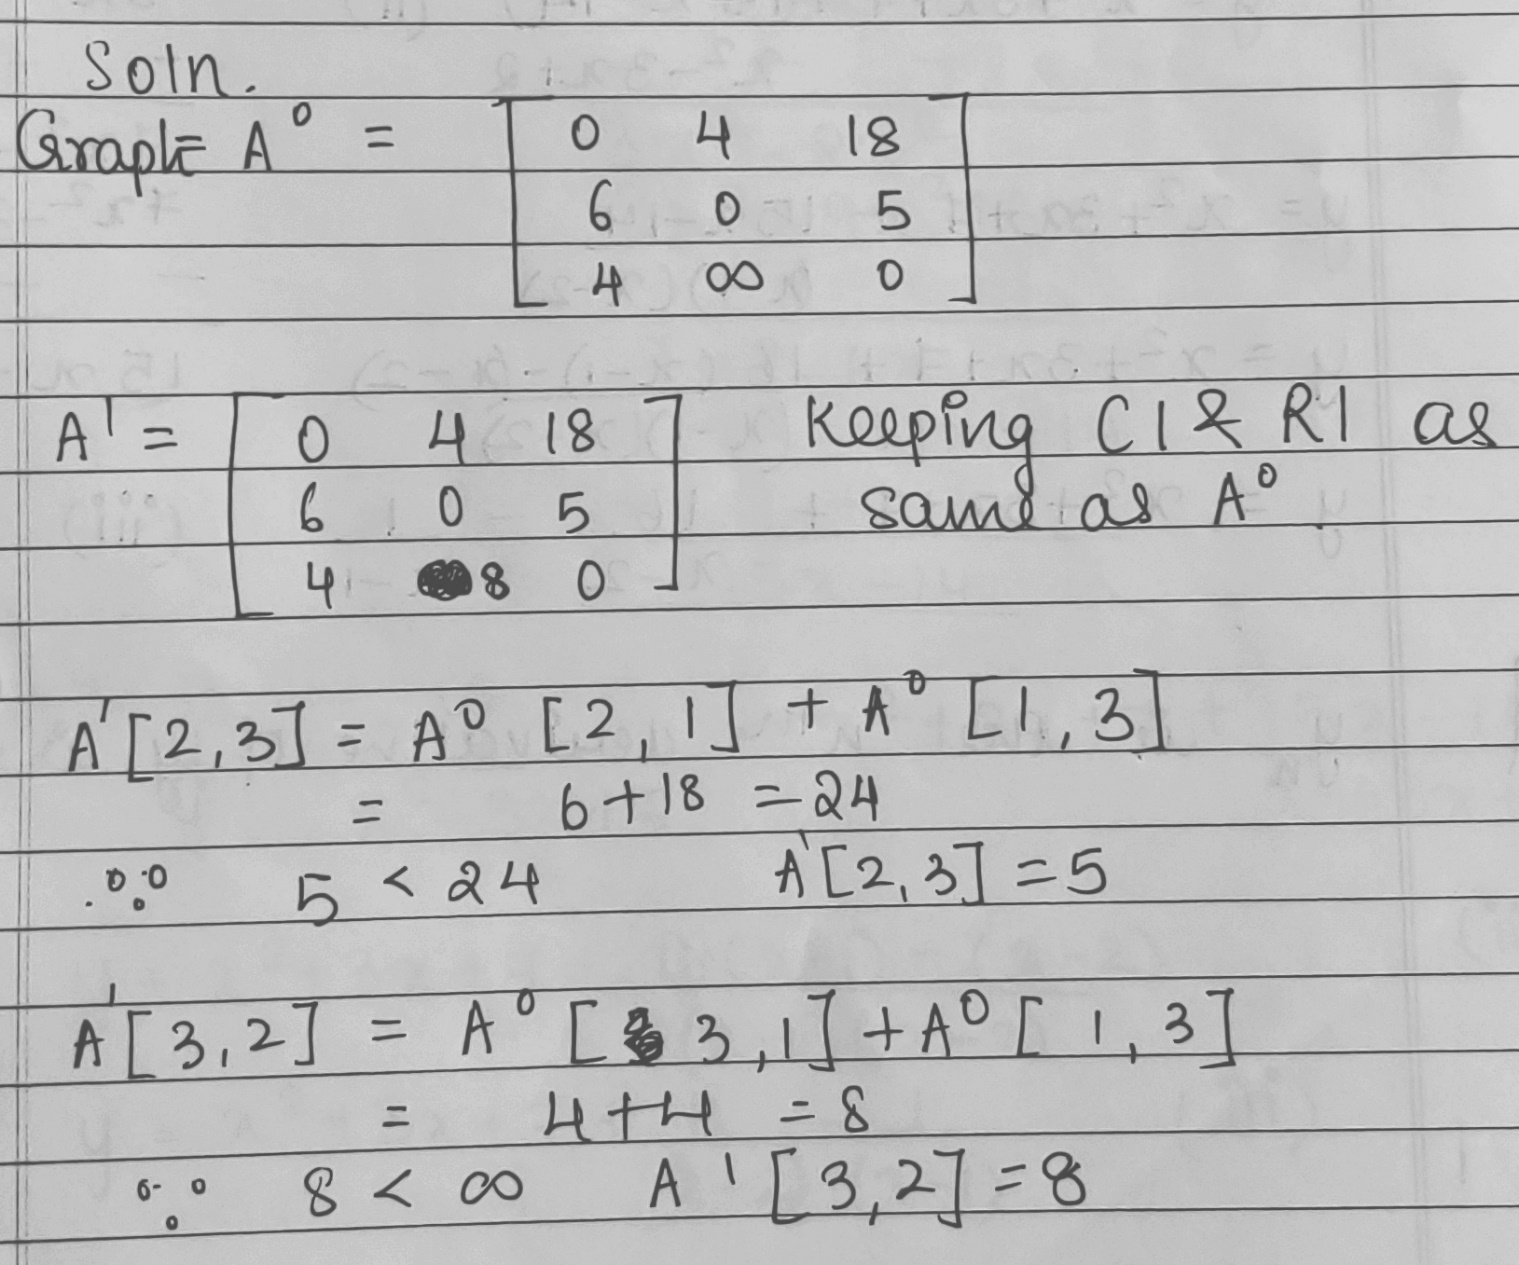 Soln.
Graph A⁰ = [ 0 4 18
6 0 5
4 ∞ 0 ]
A¹ = [ 0 4 18 ] Keeping C1 & R1 as
6 0 5 same as A⁰
4 8 0
A¹[2,3] = A⁰ [2,1] + A⁰ [1,3]
= 6+18 = 24
∵ 5 < 24 A¹[2,3] = 5
A¹[3,2] = A⁰ [3,1] + A⁰ [1,3]
= 4+4 = 8
∵ 8 < ∞ A¹ [3,2] = 8